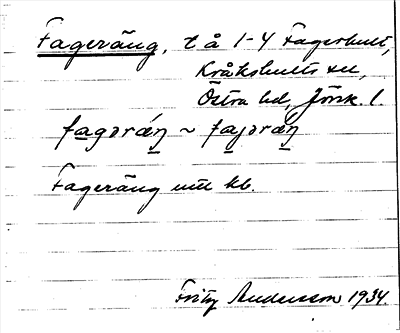 Fageräng, t å 1-4 Fagerhult,
Kråkshults sn,
Östra hd, Jönk. l.
fagəräŋ ~ fajəräŋ
Fageräng utt kb.
Fritz Andersson 1934.